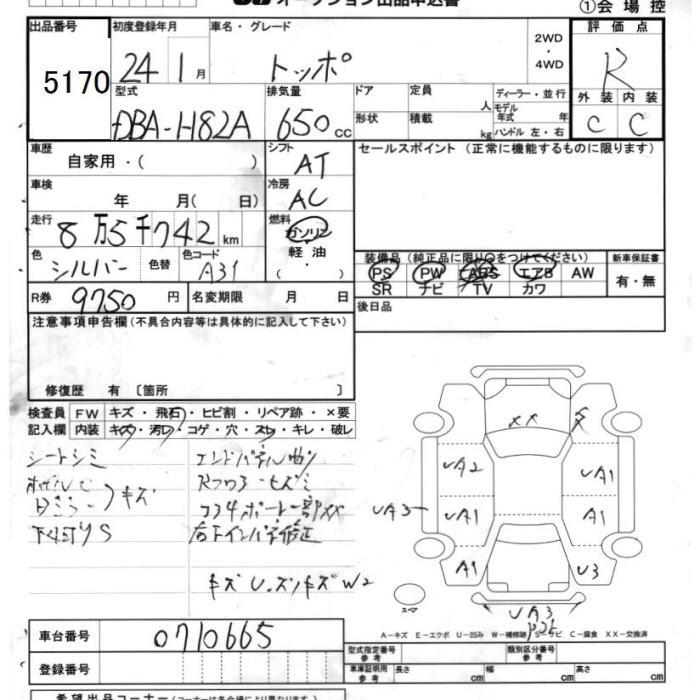 オークション出品申込書 ①会場控
出品番号 5170
初度登録年月 24 1月
車名・グレード トッポ
2WD・4WD
評価点 R
外装 C 内装 C
型式 DBA-H82A
排気量 650cc
ドア 形状
定員 人 積載 kg
ディーラー・並行
モデル年式 年
ハンドル 左・右
車歴 自家用・( )
シフト AT
セールスポイント (正常に機能するものに限ります)
車検 年 月( 日)
冷房 AC
走行 8万5千742km
燃料 ガソリン 軽油 ( )
色 シルバー 色替 色コード A31
装備品 (純正品に限り○をつけてください) 新車保証書
PS PW ABS エアB AW 有・無
SR ナビ TV カワ
R券 9750円 名変期限 月 日
後日品
注意事項申告欄(不具合内容等は具体的に記入して下さい)
修復歴 有 〔箇所 〕
検査員 FW キズ・飛石・ヒビ割・リペア跡・×要
記入欄 内装 キズ・汚れ・コゲ・穴・スレ・キレ・破レ
シートシミ エンドパネル曲り
キズ
下廻りS
キズU
W2
XX
UA2 UA1
UA3 UA1 A1
A1 U3
スペア UA3
A-キズ E-エクボ U-凹み W-補修跡 S-サビ C-腐食 XX-交換済
車台番号 0710665
型式指定番号 参考 類別区分番号 参考
登録番号
車庫証明用 参考 長さ cm 幅 cm 高さ cm
希望出品コーナー(コーナー名は各会場により異なります)